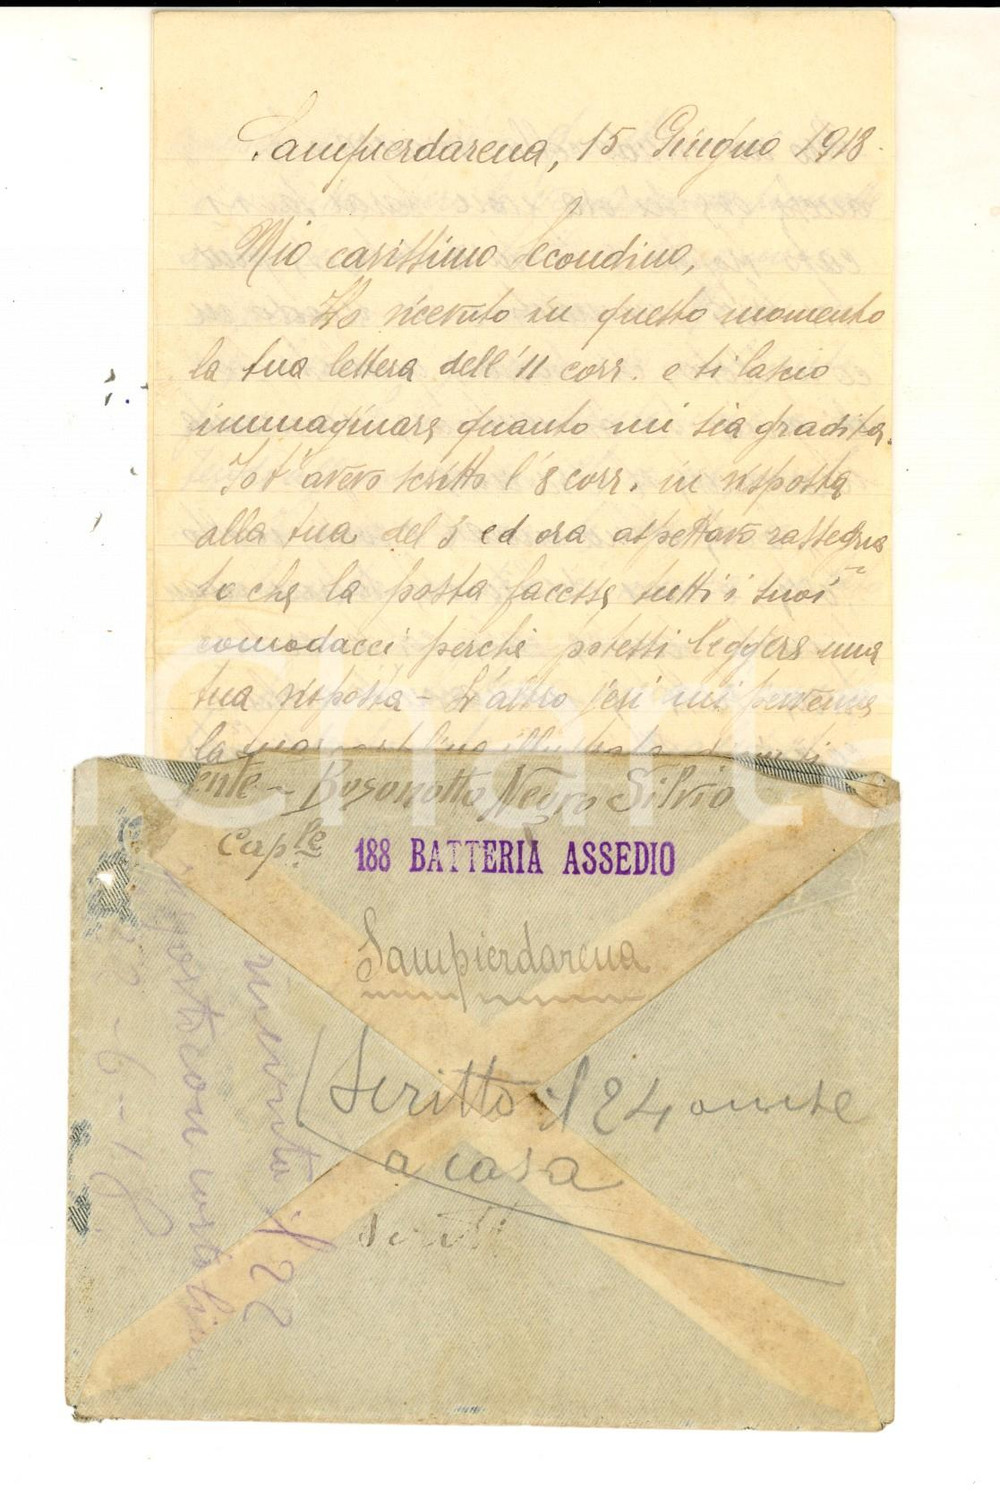 Sampierdarena, 15 Giugno 1918.
Mio carissimo Secondino,
Ho ricevuto in questo momento
la tua lettera dell'11 corr. e ti lascio
immaginare quanto mi sia gradita.
Io t'avevo scritto l'8 corr. in risposta
alla tua del 5 ed ora aspettavo rassegna
to che la posta facesse tutti i suoi
comodacci perché potessi leggere una
tua risposta - L'altro ieri mi pervenne
la
ente - Negro Silvio
Cap.le 188 BATTERIA ASSEDIO
Sampierdarena
Scritto il 24 anche
a casa
ricevuta il 22